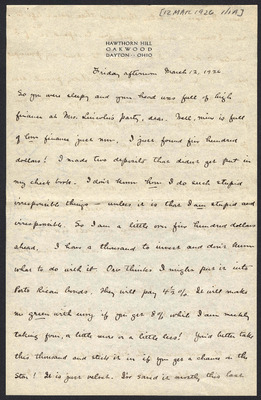 [12 MAR 1926, 1/1A]
HAWTHORN HILL
OAKWOOD
DAYTON · OHIO
Friday afternoon March 12, 1926
So you were sleepy and your head was full of high
finance at Mrs. Lincoln's party, dear. Well, mine is full
of low finance just now. I just found five hundred
dollars! I made two deposits that didn't get put in
my check book. I don't know how I do such stupid
irresponsible things – unless it is that I am stupid and
irresponsible. So I am a little over five hundred dollars
ahead. I have a thousand to invest and don't know
what to do with it. Orv thinks I might put it into
Porto Rican bonds. They will pay 4½%. It will make
me green with envy if you get 8% while I am meekly
taking four, a little more or a little less! You'd better take
this thousand and stick it in if you get a chance in the
Star! It is just velvet. I've saved it mostly this last